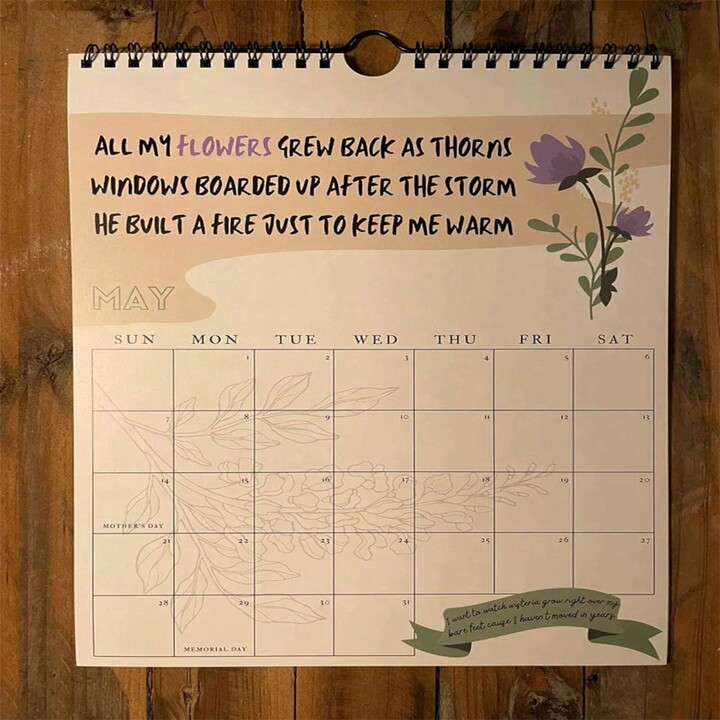 ALL MY FLOWERS GREW BACK AS THORNS
WINDOWS BOARDED UP AFTER THE STORM
HE BUILT A FIRE JUST TO KEEP ME WARM
MAY
SUN MON TUE WED THU FRI SAT
1 2 3 4 5 6
7 8 9 10 11 12 13
14 15 16 17 18 19 20
MOTHER'S DAY
21 22 23 24 25 26 27
28 29 30 31
I want to watch wisteria grow right over my
bare feet cause I haven't moved in years
MEMORIAL DAY